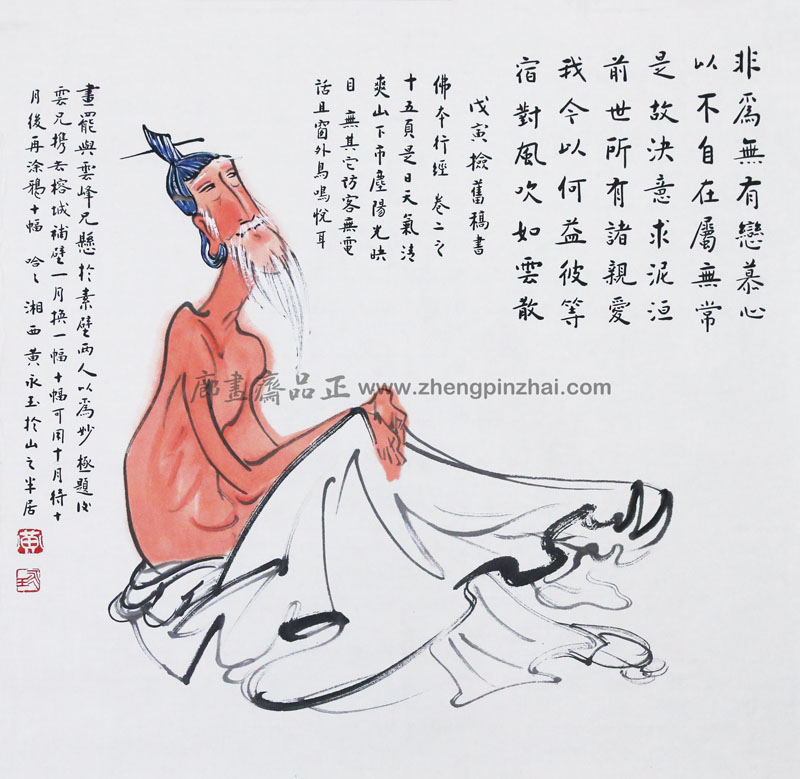 非為無有戀慕心
以不自在屬無常
是故決意求泥洹
前世所有諸親愛
我今以何益彼等
宿對風吹如雲散
戊寅撿舊稿書
佛本行經卷二之
十五頁是日天氣清
爽山下市塵陽光映
目無其它訪客無電
話且窗外鳥鳴悅耳
畫罷與雲峰兄懸於素壁兩人以為妙極題後
雲兄攜去榕城補壁一月換一幅十幅可用十月待十
月後再涂鴉十幅哈哈湘西黃永玉於山之半居
黃
永玉
正品齋畫廊 www.zhengpinzhai.com